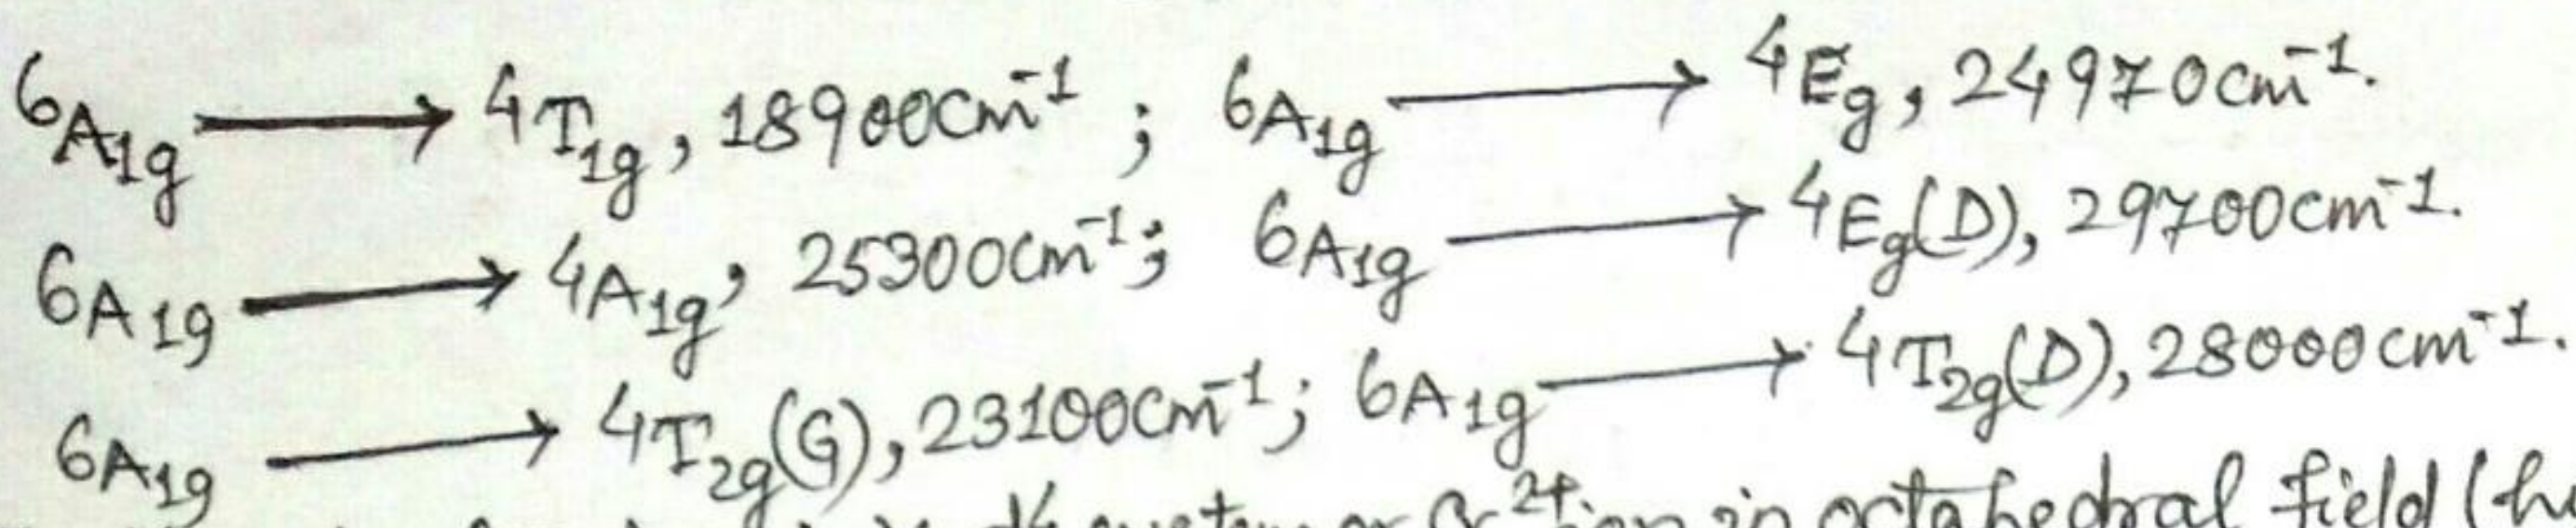 ⁶A₁g ⟶ ⁴T₁g, 18900cm⁻¹ ; ⁶A₁g ⟶ ⁴Eg, 24970cm⁻¹.
⁶A₁g ⟶ ⁴A₁g, 25300cm⁻¹; ⁶A₁g ⟶ ⁴Eg(D), 29700cm⁻¹.
⁶A₁g ⟶ ⁴T₂g(G), 23100cm⁻¹; ⁶A₁g ⟶ ⁴T₂g(D), 28000cm⁻¹.
d⁴ system or Cr²⁺ ion in octahedral field (h